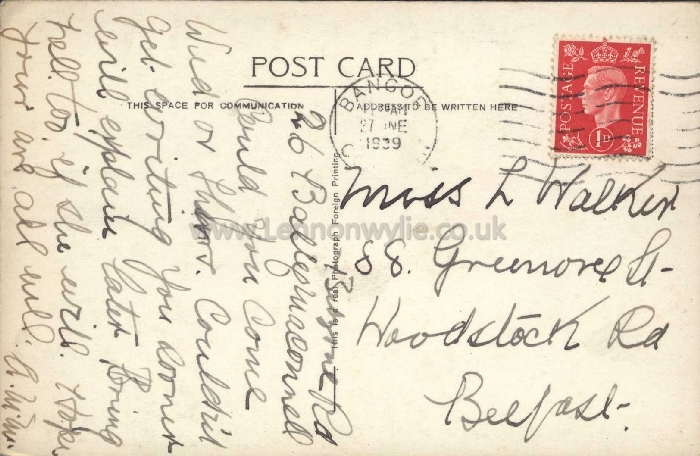 POST CARD
THIS SPACE FOR COMMUNICATION
ADDRESS TO BE WRITTEN HERE
BANGOR
27 JNE
1939
POSTAGE
REVENUE
1D
This is a real Photograph Foreign Printing
www.Lennonwylie.co.uk
26 Ballymaconnell
Rd
Could you come
Wed or Thurs. Couldn't
get writing you sooner
will explain later Bring
Nell too if she will. Hope
your are all well.
Miss L Walker
88. Greenore St-
Woodstock Rd
Belfast.